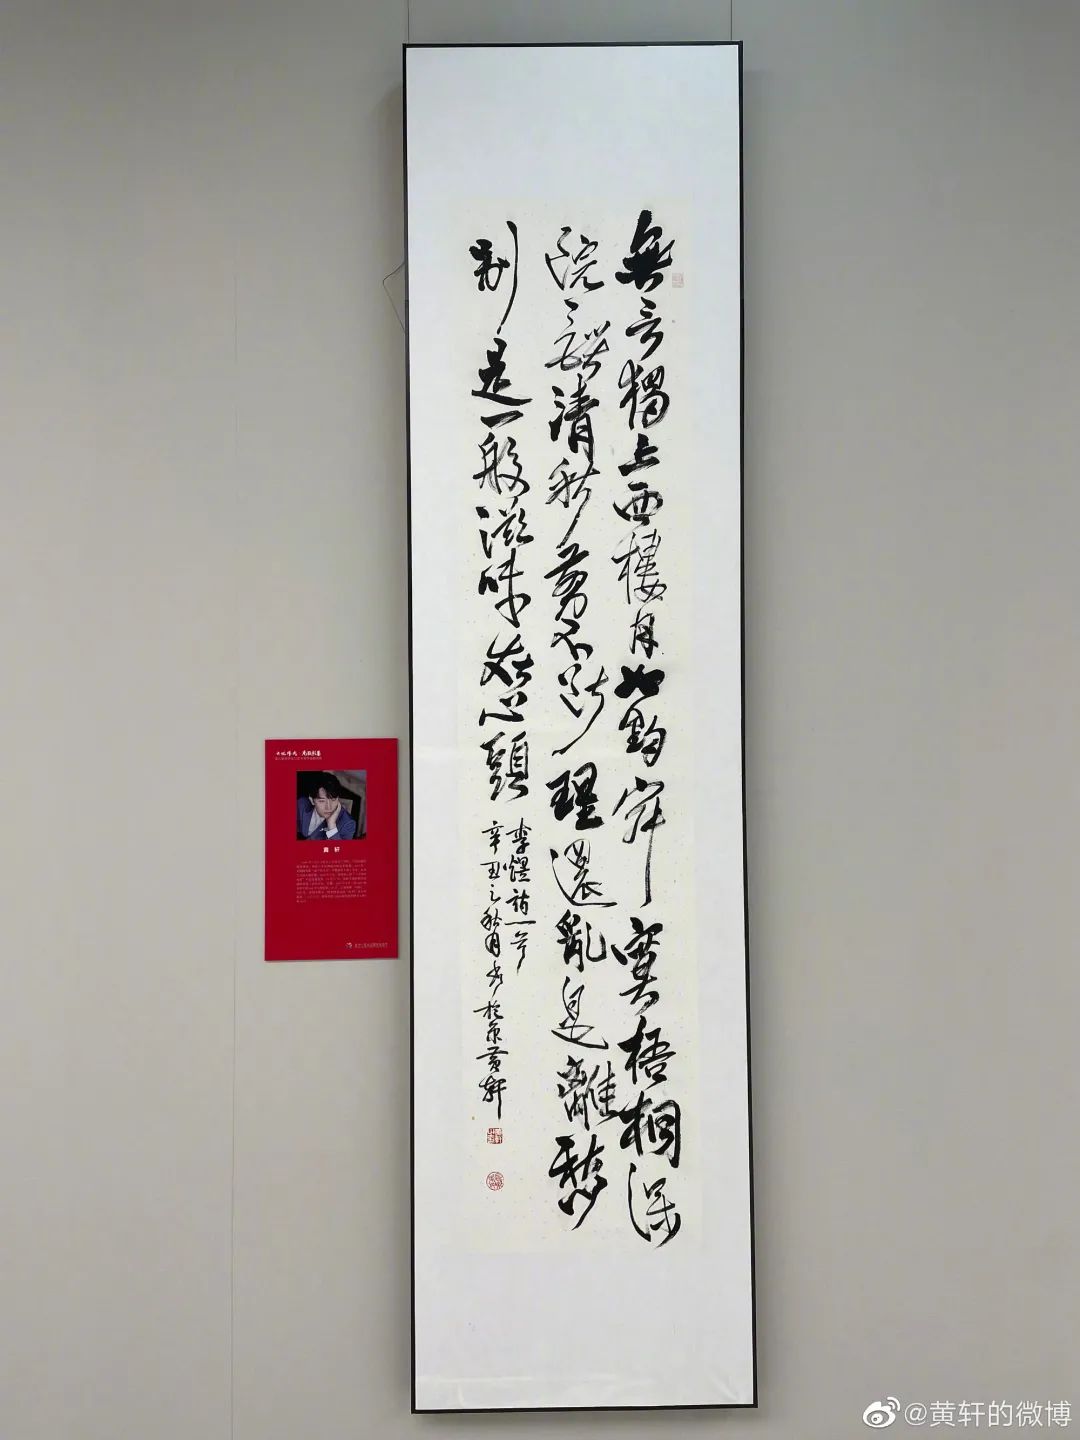 無言獨上西樓月如鈎寂寞梧桐深
院鎖清秋剪不斷理還亂是離愁
別是一般滋味在心頭
李煜詞一首
辛丑之秋月書於京黃軒
黄轩
@黄轩的微博